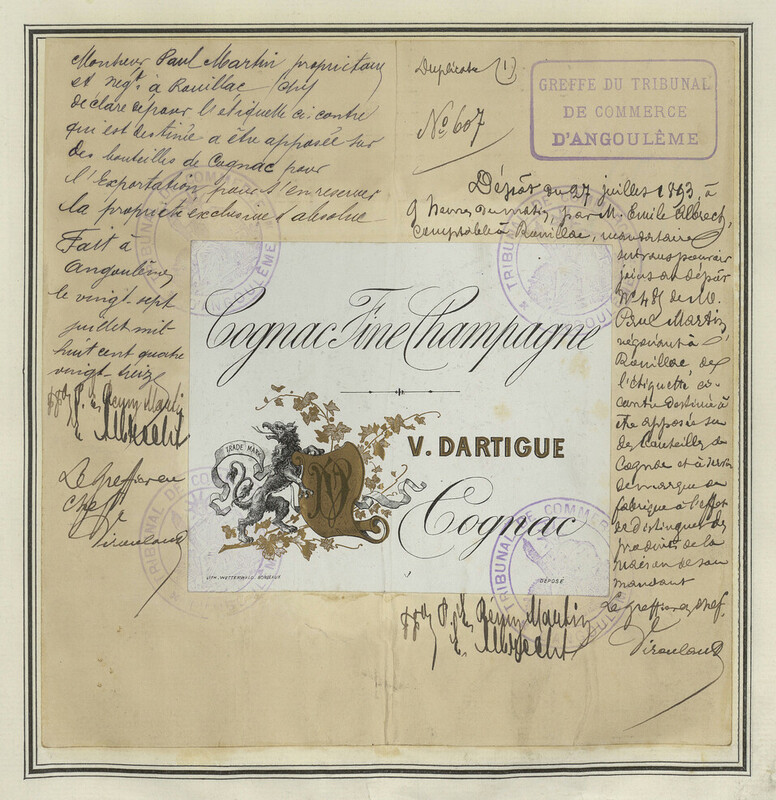 Monsieur Paul Martin propriétaire
et negt à Rouillac
déclare déposer l'étiquette ci contre
qui est destinée a être apposée sur
des bouteilles de Cognac pour
l'Exportation pour s'en reserver
la propriété exclusive & absolue
Fait à
Angoulême
le vingt sept
juillet mil
huit cent quatre
vingt treize
ppon P. E. Rémy Martin
E. Albrecht
Le Greffier en
Chef
Duplicata (1)
No 607
GREFFE DU TRIBUNAL
DE COMMERCE
D'ANGOULÊME
Dépôt du 27 juillet 1893, à
9 heures du matin, par M. Emile Albrecht,
Comptable à Rouillac, mandataire
suivant pouvoir
joint au dépôt
No 481 de M.
Paul Martin,
négociant à
Rouillac, de
l'étiquette ci-
contre destinée à
être apposée sur
des bouteilles de
Cognac et à servir
de marque de
fabrique à l'effet
de distinguer les
produits de la
maison de son
mandant
Le greffier en chef
Cognac Fine Champagne
TRADE MARK
V. DARTIGUE
Cognac
LITH. WETTERWALD. BORDEAUX
DÉPOSÉ
ppon P. E. Rémy Martin
E. Albrecht
TRIBUNAL DE COMMERCE
ANGOULÊME
TRIBUNAL DE COMMERCE
TRIBUNAL DE COMMERCE
TRIBUNAL DE COMMERCE